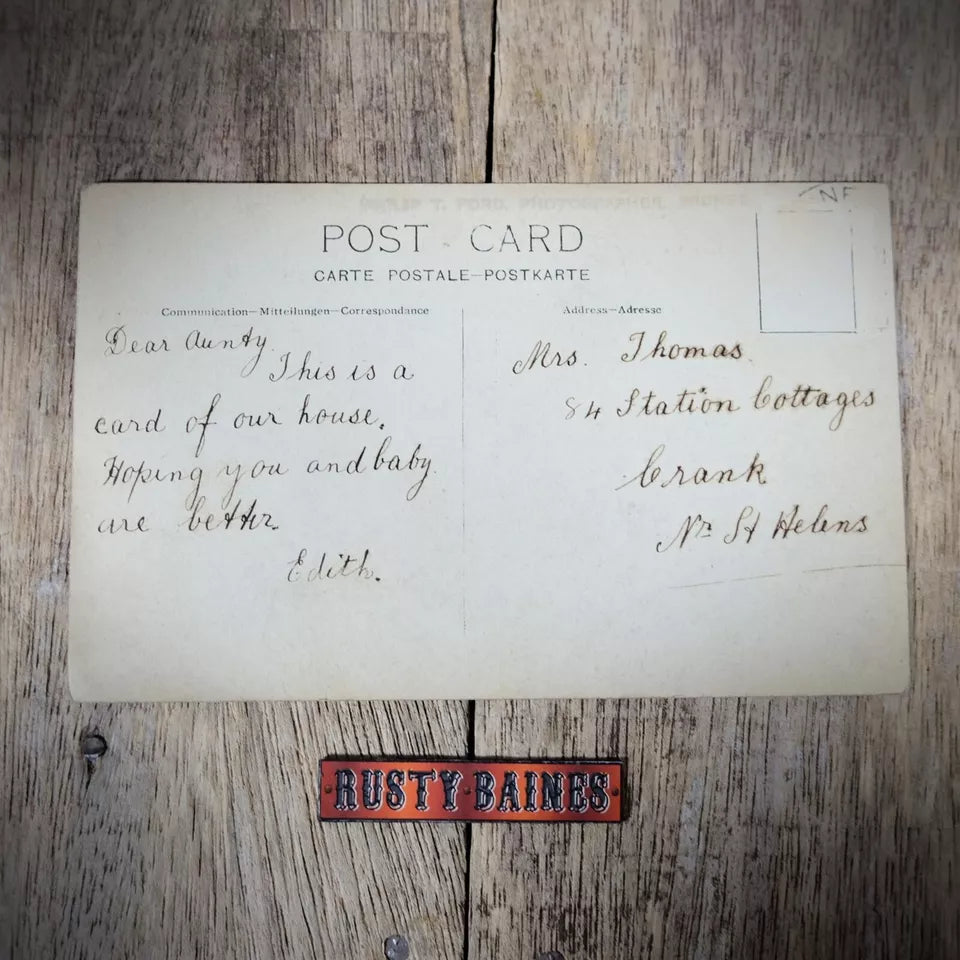 NF
T. FORD, PHOTOGRAPHER,
POST CARD
CARTE POSTALE—POSTKARTE
Communication—Mitteilungen—Correspondance
Address—Adresse
Dear Aunty
This is a
card of our house.
Hoping you and baby
are better.
Edith.
Mrs. Thomas
84 Station Cottages
Crank
Nr St Helens
RUSTY BAINES